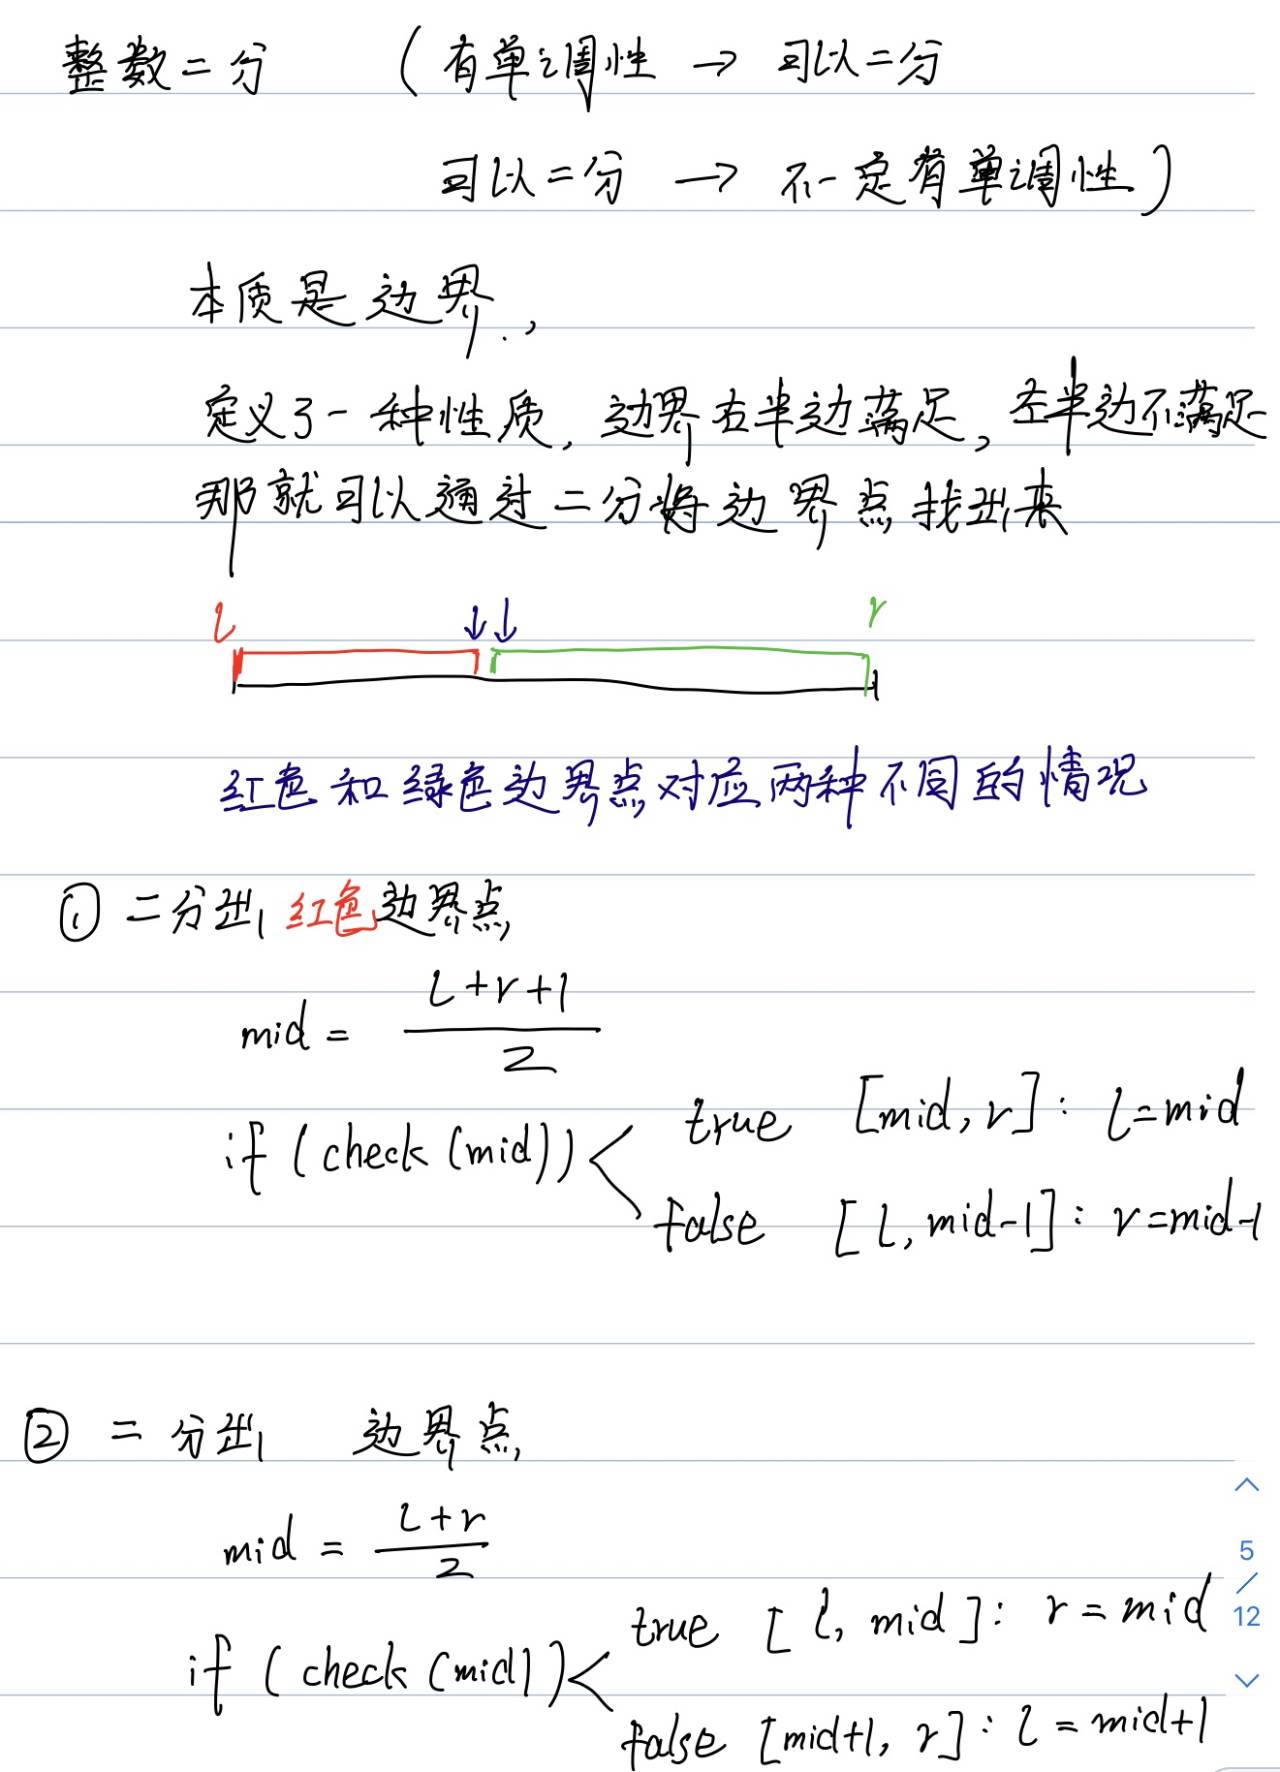 整数二分 (有单调性 → 可以二分
可以二分 → 不一定有单调性)
本质是边界.,
定义了一种性质, 边界右半边满足, 左半边不满足
那就可以通过二分将边界点找出来
l ↓↓ r
红色和绿色边界点对应两种不同的情况
① 二分出红色边界点
mid = (l+r+1)/2
true [mid, r]: l=mid
if (check (mid))<
false [l, mid-1]: r=mid-1
② 二分出 边界点
mid = (l+r)/2
true [l, mid]: r=mid
if (check (mid))<
false [mid+1, r]: l=mid+1
5
/
12